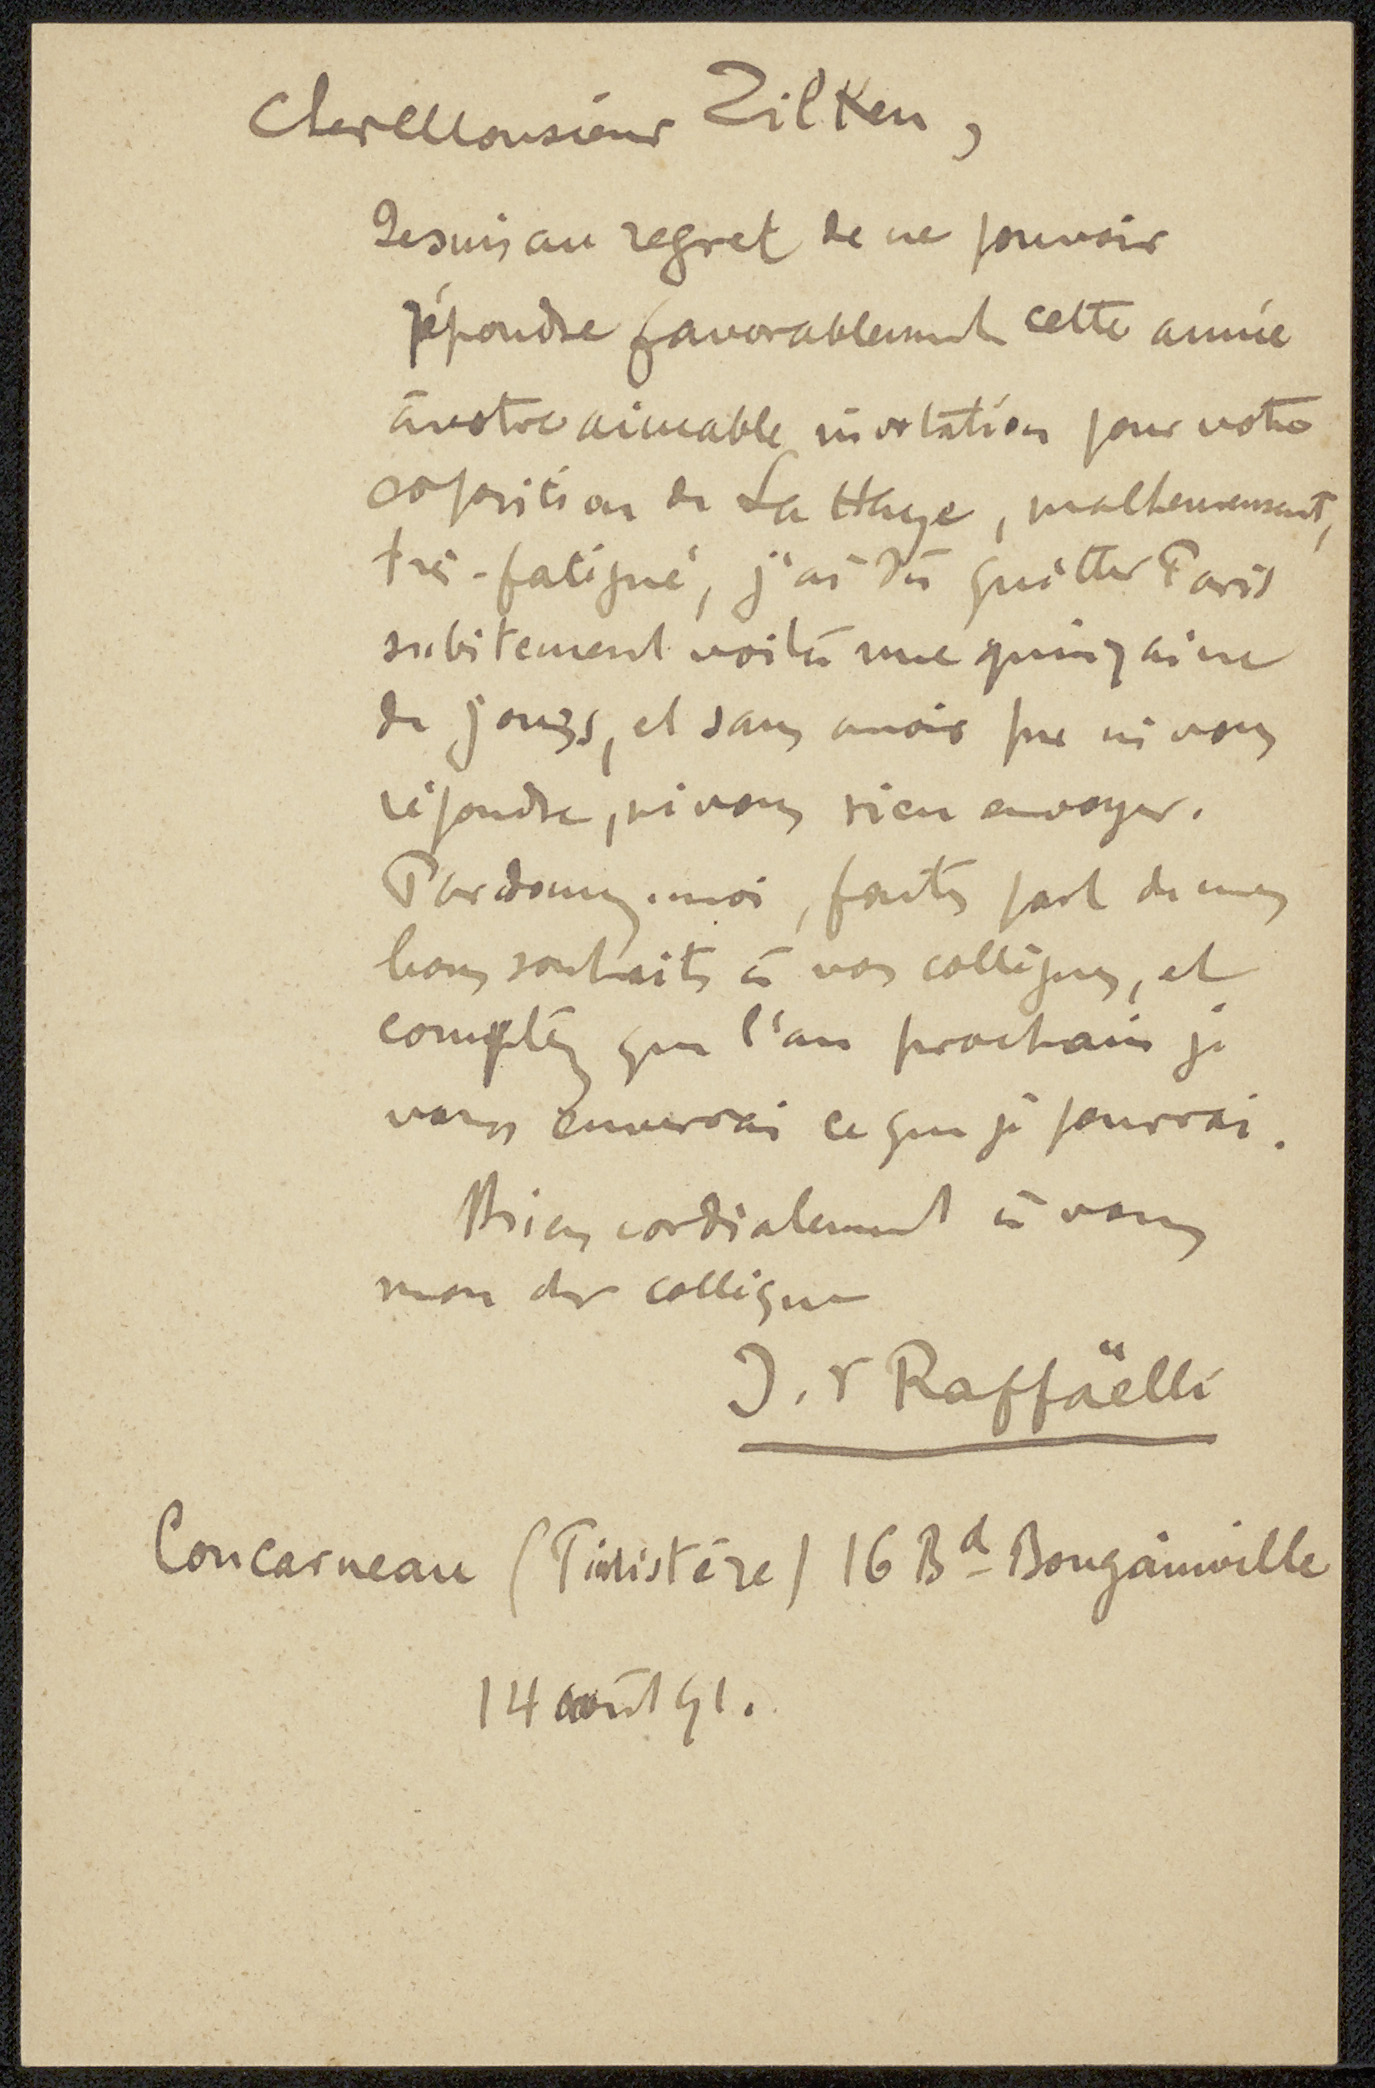 Cher Monsieur Zilken,
Je suis au regret de ne pouvoir
répondre favorablement cette année
à votre aimable invitation pour votre
exposition de La Haye, malheureusement,
très-fatigué, j'ai dû quitter Paris
subitement voilà une quinzaine
de jours, et sans avoir pu ni vous
répondre, ni vous rien envoyer.
Pardonnez-moi, faites part de mes
bons souhaits à vos collègues, et
comptez que l'an prochain je
vous enverrai ce que je pourrai.
Bien cordialement à vous
mon cher collègue
J. F Raffaëlli
Concarneau (Finistère) 16 Bd Bougainville
14 août 91.